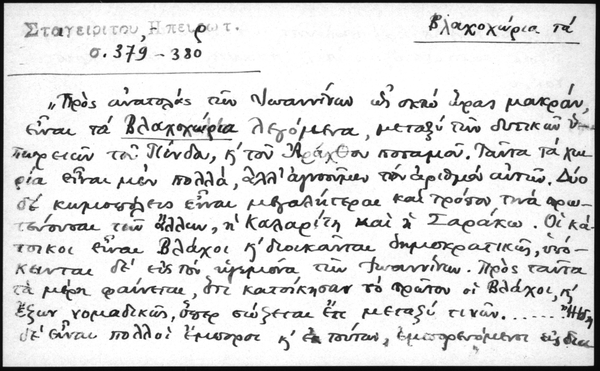 Σταγειρίτου Ηπειρωτ.
Βλαχοχώρια τά
σ. 379 - 380
„Πρὸς ἀνατολὰς τῶν Ἰωαννίνων ὡς ὀκτὼ ὥρας μακράν,
εἶναι τὰ Βλαχοχώρια λεγόμενα, μεταξὺ τῶν δυτικῶν ὑπω
πωρειῶν τοῦ Πίνδου, κ' τοῦ Ἀράχθου ποταμοῦ. Ταῦτα τὰ χω
ρία εἶναι μὲν πολλά, ἀλλ' ἀγνοοῦμεν τὸν ἀριθμὸν αὐτῶν. Δύο
δὲ κωμοπόλεις εἶναι μεγαλήτεραι καὶ τρόπον τινὰ πρω
τεύουσαι τῶν ἄλλων, ἡ Καλαρίτη καὶ ἡ Σαράκω. Οἱ κά
τοικοι εἶναι Βλάχοι κ' διοικοῦνται δημοκρατικῶς, ὑπό
κεινται δὲ εἰς τὸν ἡγεμόνα τῶν Ἰωαννίνων. Πρὸς ταῦτα
τὰ μέρη φαίνεται, ὅτι κατοίκησαν τὸ πρῶτον οἱ Βλάχοι, κ'
ἔζων νομαδικῶς, ὅπερ σώζεται ἔτι μεταξύ τινῶν. ...... Ἤδη
δὲ εἶναι πολλοὶ ἔμποροι κ' ἐκ τούτων, ἐμπορευόμενοι εἰς δια